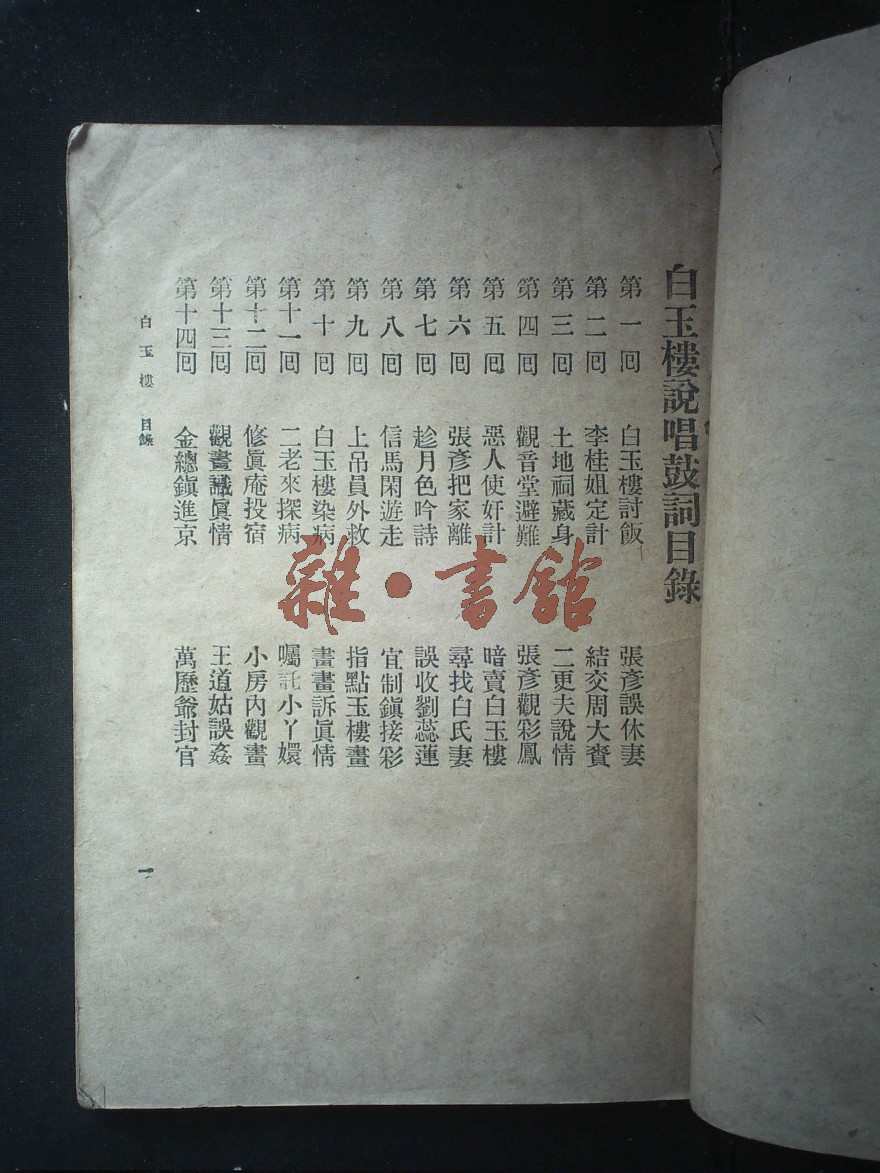 白玉樓說唱鼓詞目錄
第一回 白玉樓討飯 張彥誤休妻
第二回 李桂姐定計 結交周大賚
第三回 土地祠藏身 二更夫說情
第四回 觀音堂避難 張彥觀彩鳳
第五回 惡人使奸計 暗賣白玉樓
第六回 張彥把家離 尋找白氏妻
第七回 趁月色吟詩 誤收劉蕊蓮
第八回 信馬閑遊走 宜制鎮接彩
第九回 上吊員外救 指點玉樓畫
第十回 白玉樓染病 畫畫訴眞情
第十一回 二老來探病 囑託小丫嬛
第十二回 修眞庵投宿 小房內觀畫
第十三回 觀畫識眞情 王道姑誤姦
第十四回 金總鎮進京 萬歷爺封官
白玉樓 目錄
一
雜·書館